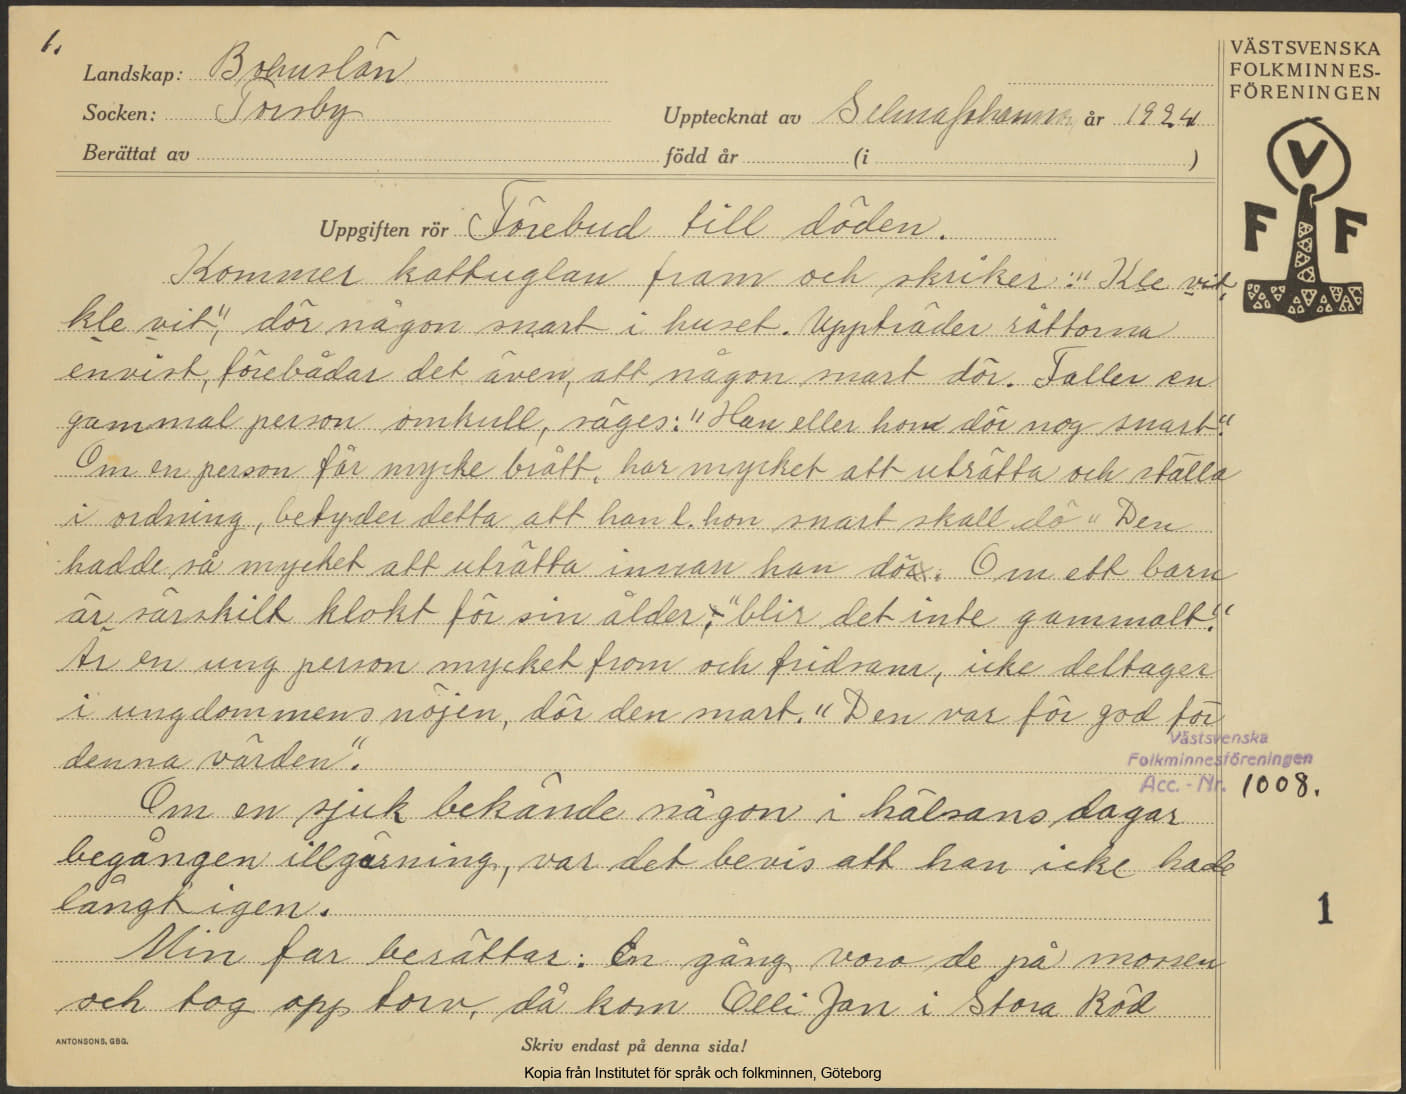 1.
Landskap: Bohuslän
Socken: Torsby
Upptecknat av Selma Johansson år 1924
Berättat av född år (i )
VÄSTSVENSKA
FOLKMINNES-
FÖRENINGEN
V
F F
Uppgiften rör Förebud till döden.
Kommer kattuglan fram och skriker: "Kle vit,
kle vit", dör någon snart i huset. Uppträder råttorna
envist, förebådar det även, att någon snart dör. Faller en
gammal person omkull, säges: "Han eller hon dör nog snart."
Om en person får mycke brått, har mycket att uträtta och ställa
i ordning, betyder detta att han l. hon snart skall dö "Den
hadde så mycket att uträtta innan han dör. Om ett barn
är särskilt klokt för sin ålder, "blir det inte gammalt."
Är en ung person mycket from och fridsam, icke deltager
i ungdommens nöjen, dör den snart. "Den var för god för
denna värden".
Västsvenska
Folkminnesföreningen
Acc. - Nr. 1008.
Om en sjuk bekände någon i hälsans dagar
begången illgärning, var det bevis att han icke hade
långt igen.
1
Min far berättar: En gång voro de på mossen
och tog opp torv, då kom Olli Jan i Stora Röd
ANTONSONS, GBG.
Skriv endast på denna sida!
Kopia från Institutet för språk och folkminnen, Göteborg